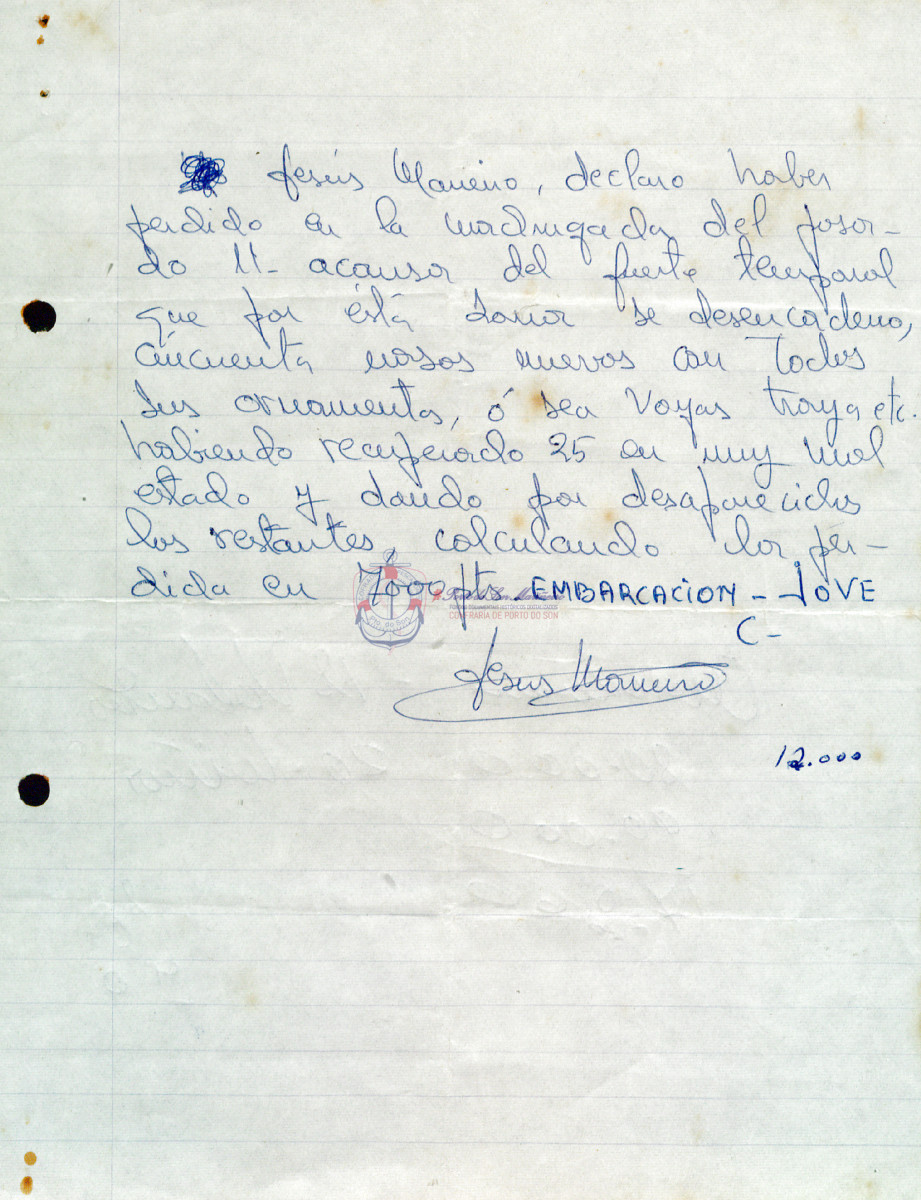 Jesús Maneiro, declaro haber
perdido en la madrugada del pasa-
do 11- acausa del fuerte temporal
que por está zona se desencadeno,
cincuenta nasas nuevas con todos
sus ornamentos, ó sea Voyas traya etc.
habiendo recuperado 25 en muy mal
estado y dando por desaparecidos
las restantes, calculando la per-
dida en 7000 pts. EMBARCACION - JOVE
C-
Pto. do Son
CONFRARÍA DE PORTO DO SON
Jesus Maneiro
12.000